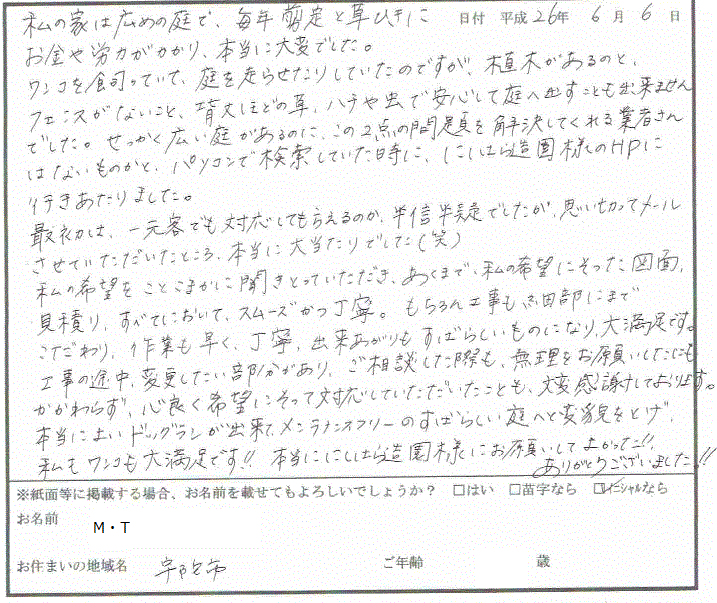 私の家は広めの庭で、毎年剪定と草ひきに
日付 平成26年 6月 6日
お金や労力がかかり、本当に大変でした。
ワンコを飼っていて、庭を走らせたりしていたのですが、植木があるのと、
フェンスがないこと、背丈ほどの草、ハチや虫で安心して庭へ出すことも出来ません
でした。せっかく広い庭があるのに、この2点の問題を解決してくれる業者さん
はないものかと、パソコンで検索していた時に、にしはら造園様のHPに
行きあたりました。
最初は、一元客でも対応してもらえるのか、半信半疑でしたが、思い切ってメール
させていただいたところ、本当に大当たりでした(笑)
私の希望をことこまかに聞きとっていただき、あくまで、私の希望にそった図面、
見積り、すべてにおいて、スムーズかつ丁寧。もちろん工事も、細部にまで
こだわり、作業も早く、丁寧、出来あがりもすばらしいものになり、大満足です。
工事の途中、変更したい部分があり、ご相談した際も、無理をお願いしたにも
かかわらず、心良く希望にそって対応していただいたことも、大変感謝しております。
本当によいドッグランが出来て、メンテナンスフリーのすばらしい庭へと変貌をとげ、
私もワンコも大満足です!! 本当ににしはら造園様にお願いしてよかったー!!
ありがとうございましたー!!
※紙面等に掲載する場合、お名前を載せてもよろしいでしょうか? □はい □苗字なら ☑イニシャルなら
お名前
M・T
お住まいの地域名 宇陀市 ご年齢 歳